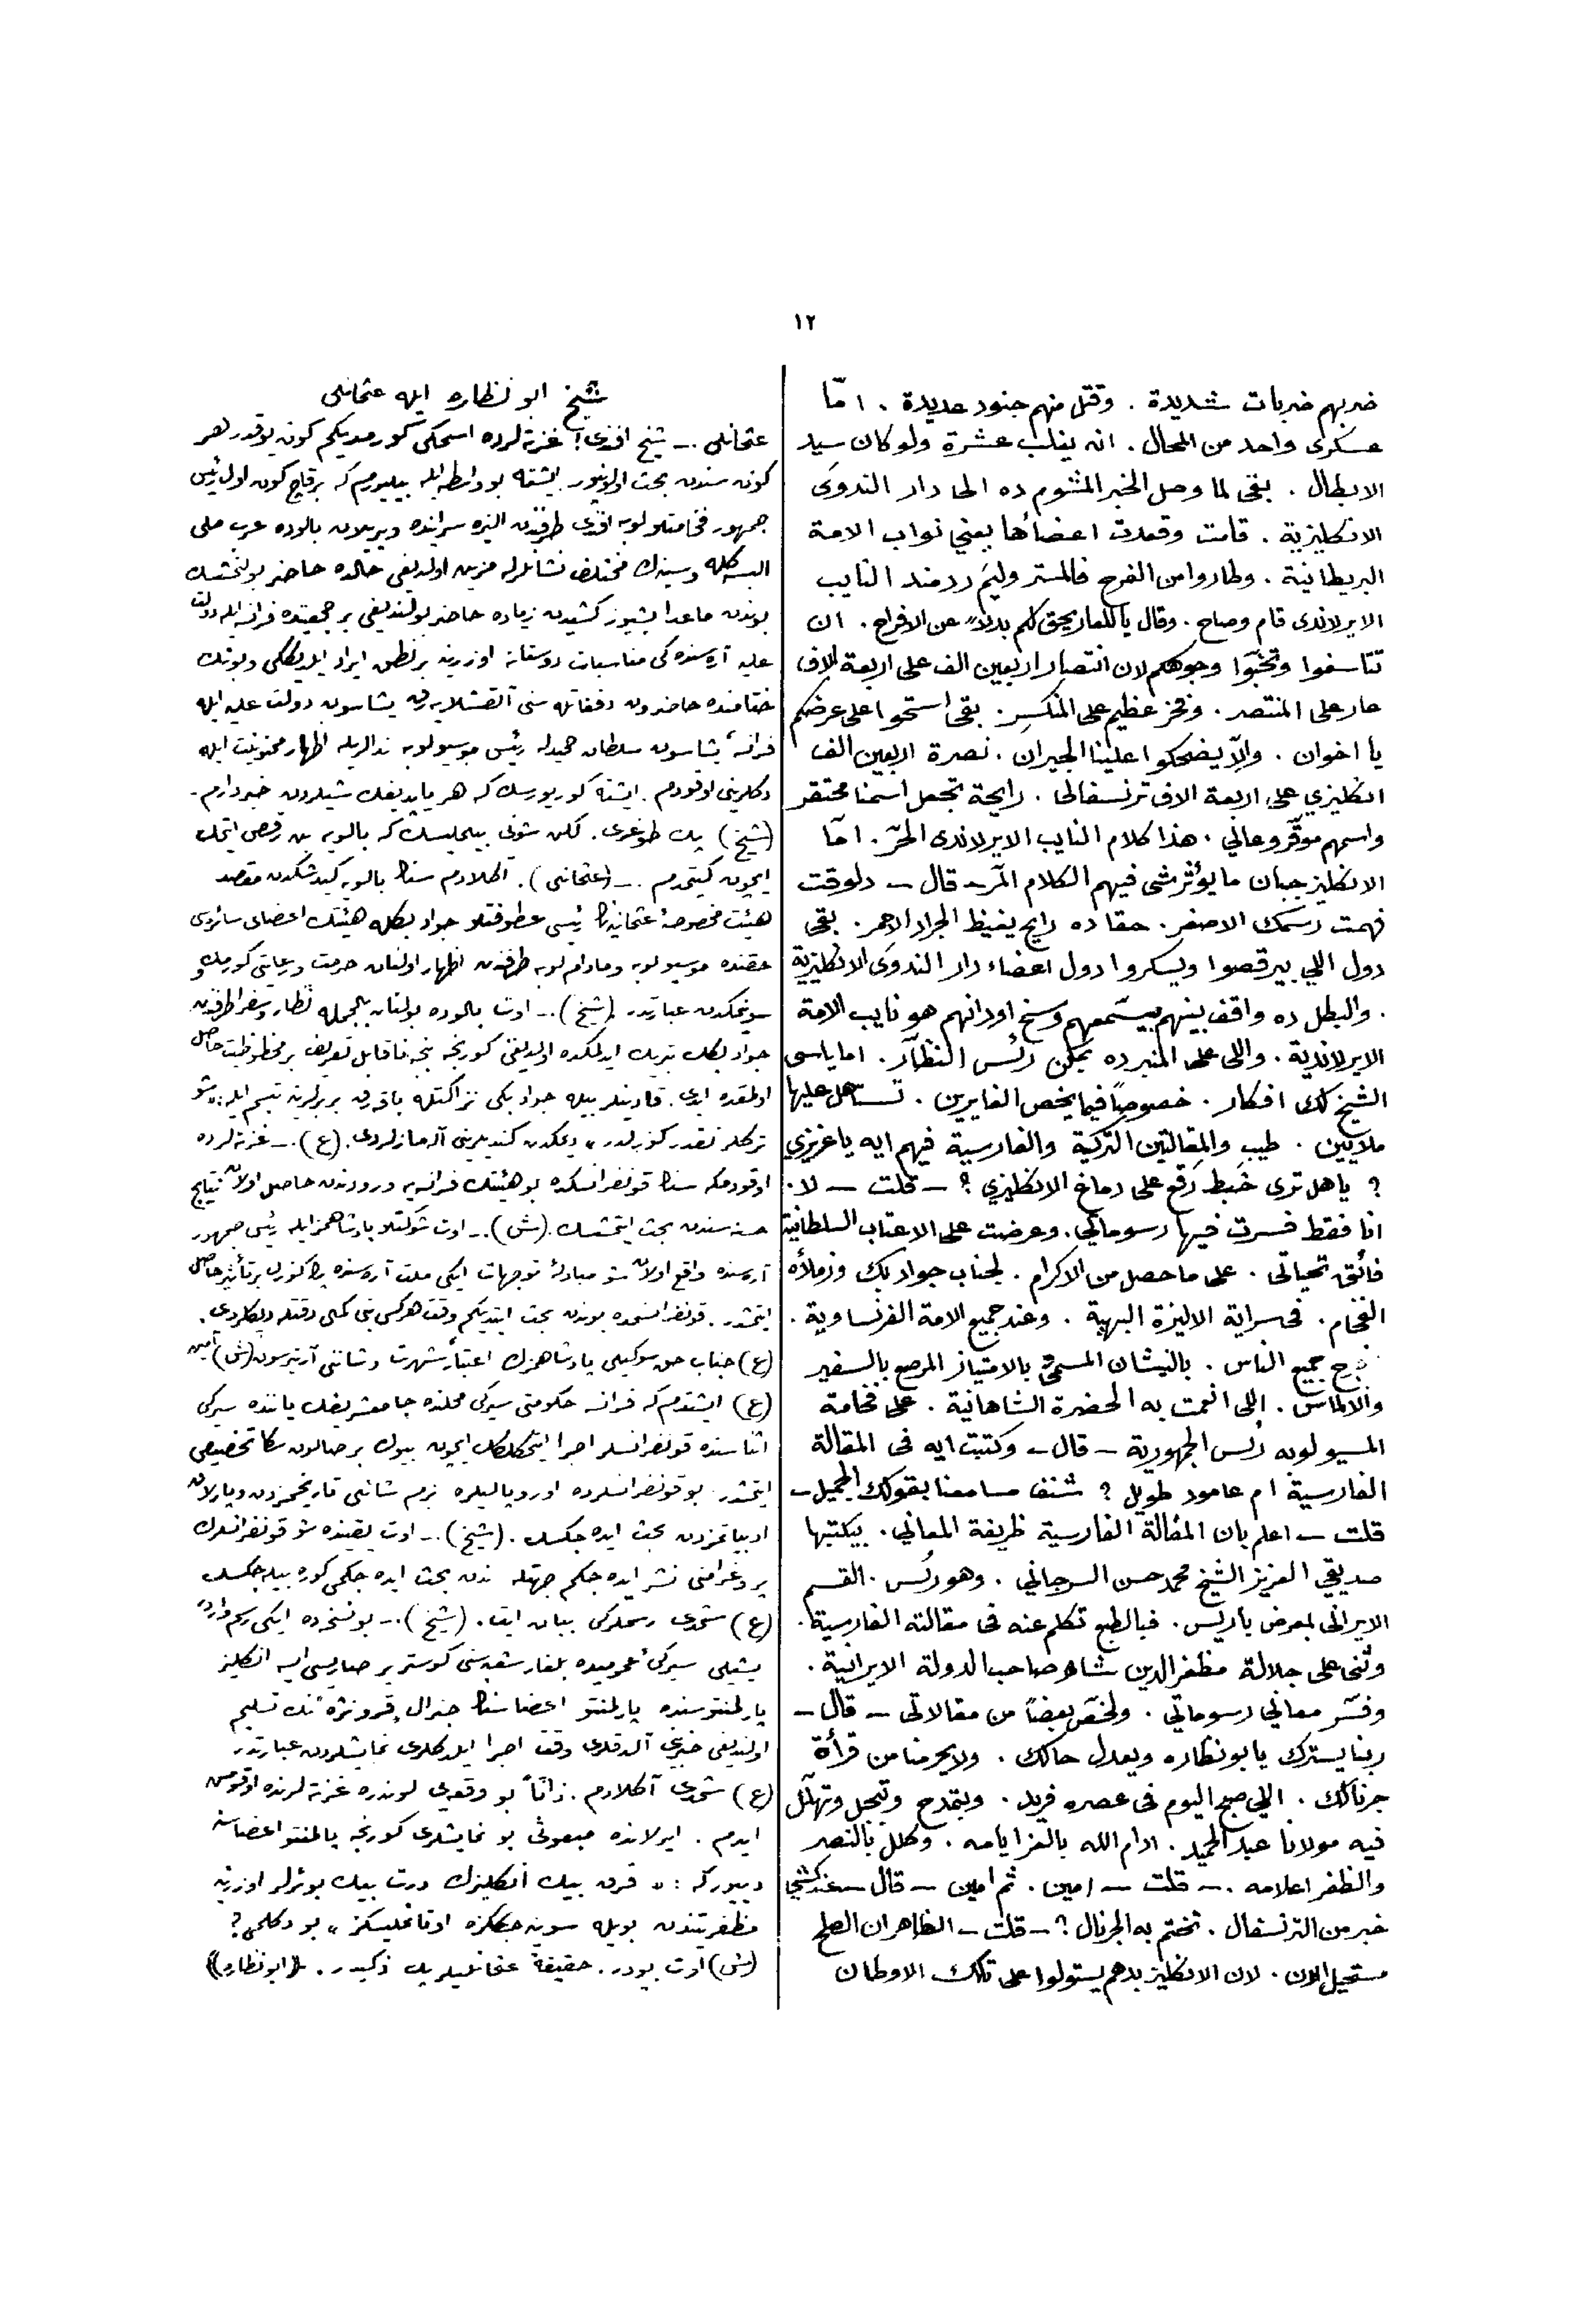 ١٢
ضربهم ضربات شديدة . وقتل منهم جنود عديدة . امّا
عسكرى واحد من المحال . انه يغلب عشرة ولو كان سيد
الابطال . بقى لما وصل الخبر المشوم ده الى دار الندوى
الانكليزية . قامت وقعدت اعضاها يعني نواب الامة
البريطانية . وطاروا من الفرح فالمستر وليم ردمند النايب
الايرلاندى قام وصاح . وقال ياللعار يحق لكم بدلاً عن الافراح . ان
تتأسفوا وتخبّوا وجوهكم لان انتصار اربعين الف على اربعة الاف
عار على المنتصر . وفخر عظيم على المنكسر . بقى استحوا على عرضكم
يا اخوان . والّا يضحكوا علينا الجيران . نصرة اربعين الف
انكليزي على اربعة الاف ترنسفالى . رايحة تجعل اسمنا محتقر
واسمهم موقّر وعالي . هذا كلام النايب الايرلاندى الحرّ . امّا
الانكليز جبان ما يؤثرشى فيهم الكلام المرّ – قال – دلوقت
فهمت رسمك الاصفر . حقا ده رايح يغيظ الجراد الاحمر . بقى
دول اللي بيرقصوا ويسكروا دول اعضاء دار الندوى الانكليزية
. والبطل ده واقف بينهم بيسمعهم وسخ اودانهم هو نايب الامة
الايرلاندية . واللى على المنبر ده يمكن رئس النظّار . اما ياسى
الشيخ لك افكار . خصوصاً فيما يخص الغايرين . تستاهل عليها
ملايين . طيب والمقالتين التركية والفارسية فيهم ايه يا عزيزي
؟ يا هل ترى خبط رقع على دماغ الانكليزي ؟ – قلت – لا .
انا فقط فسرت فيها رسوماتي . وعرضت على الاعتاب السلطانية
فائق تحياتى . على ما حصل من الاكرام . لجناب جواد بك وزملأه
الفخام . فى سراية الاليزة البهية . وعند جميع الامة الفرنساوية .
جميع الناس . بالنيشان المسمّى بالامتياز المرصع بالسفير
والالماس . اللى انعمت به الحضرة الشاهانية . على فخامة
المسيو لوبه رئس الجمهورية – قال – وكتبت ايه فى المقالة
الفارسية ام عامود طويل ؟ شنف مسامعنا بقولك الجميل –
قلت – اعلم بان المقالة الفارسية ظريفة المعاني . بيكتبها
صديقي العزيز الشيخ محمد حسن السرجاني . وهو رئس القسم
الايرانى بمعرض باريس . فبالطبع تكلم عنه فى مقالته الفارسية .
وثنى على جلالة مظفر الدين شاه صاحب الدولة الايرانية .
وفسّر معاني رسوماتي . ولخّص بعضاً من مقالاتى – قال –
ربنا يسترك يا بو نظاره ويعدل حالك . ولا يحرمنا من قرأة
جرنالك . اللي صبح اليوم فى عصره فريد . وبتمدح وتبجل وتهلّل
فيه مولانا عبد الحميد . ادام الله بالعز ايامه . وكلل بالنصر
والظفر اعلامه . – قلت – امين . ثم امين – قال – عندكشى
خبر من الترنسفال . تختم به الجرنال ؟ – قلت – الظاهر ان الصلح
مستحيل الان . لان الانكليز بدهم يستولوا على تلك الاوطان
شيخ ابو نظاره ايله عثمانلى
عثمانلى – شيخ افندى ! غزته لرده اسمكى كورمديكم كون يوقدر هر
كون سندن بحث اولنيور ايشته بو واسطه ايله بيليورم كه برقاچ كون اول رئيس
جمهور فخامتلو لوبه افندى طرفندن اليزه سراينده ويريلان بالوده عرب ملى
البسه كله وسينه‌ك مختلف نشانلرله مزين اولديغى حالده حاضر بولنمشسك
بوندن ماعدا بشيوز كشيدن زياده حاضر بولنديغى بر جمعيتده فرانسه ايله دولت
عليه آره سنده كى مناسبات دوستانه اوزرينه بر نطق ايراد ايلديككى وبونك
ختامنده حاضرون دفعاتله سنى آلقشلايه رق يشاسون دولت عليه ايله
فرانسه يشاسون سلطان حميدله رئيس موسيو لوبه ندالريله اظهار ممنونيت ايله
دكلريني اوقودم . ايشته كوريورسك كه هر يابديغك شيلردن خبردارم .
(شيخ) پك طوغرى . لكن شونى بيلمليسك كه بالويه بن رقص ايتمك
ايچون كيتمدم – (عثمانلى) . اكلادم سنك بالويه كيدشكدن مقصد
هيئت مخصوصهٔ عثمانيه‌نك رئيسى عطوفتلو جواد بكله هيئتك اعضاى سائره‌سى
حقنده موسيو لوبه ومادام لوبه طرفندن اظهار اولنان حرمت ورعايتى كورمك و
سونمكدن عبارتدر . (شيخ) – اوت بالوده بولنان بالجمله نظار وسفرا طرفندن
جواد بكك تبريك ايدلمكده اولديغنى كورنجه بنجه ناقابل تعريف بر محظوظيت حاصل
اولمقده ايدى . قادينلر بيله جواد بكى نزاكتله باقه رق بربرلرينه تبسم ايله : «شو
تركلر نقدر كوزلدر» ديمكدن كنديلرينى آله مازلردى . (ع) – غزته لرده
اوقودم كه سنك قونفرانسكده بو هيئتك فرانسه‌يه ورودندن حاصل اولان نتايج
حسنه سندن بحث ايتمشسك . (ش) – اوت شوكتلو پادشاهمز ايله رئيس جمهور
آره سنده واقع اولان شو مبادلهٔ توجهات ايكى ملت آره سنده پك كوزل بر تأثير حاصل
ايتمشدر . قونفرانسمده بوندن بحث ايتديكم وقت هركس بنى كمال دقتله ديكلردى .
(ع) جناب حق سوكيلى پادشاهمزك اعتبار شهرت وشاننى آرتيرسون (ش) آمين
(ع) ايشتدم كه فرانسه حكومتى سركى محلنده جامعشريفك ياننده سركى
اثناسنده قونفرانسلر اجرا ايتمكلكك ايچون بيوك بر صالون سكا تخصيص
ايتمشدر . بو قونفرانسلرده اوروپاليلره بزم شانلى تاريخمزدن وپارلاق
ادبياتمزدن بحث ايده جكسك . (شيخ) – اوت يقينده شو قونفرانسلرك
پروغرامنى نشر ايده جكم جهتله ندن بحث ايده جكمى كوره بيله جكسك
(ع) شمدى رسملركى بيان ايت . (شيخ) – بو نسخه ده ايكى رسم واردر
يشيلى سركى عموميده بلغار شعبه سنى كوسترير صاريسى ايسه انكليز
پارلمنتوسنده پارلمنتو اعضاسنك جنرال قرونژه نك تسليم
اولنديغى خبرينى آلدقلرى وقت اجرا ايلدكلرى نمايشلردن عبارتدر
(ع) شمدى آكلادم . ذاتاً بو وقعه‌يى لوندره غزته لرنده اوقومش
ايدم . ايرلانده مبعوثى بو نمايشلرى كورنجه پارلمنتو اعضاسنه
ديبوركه : « قرق بيك انكليزك درت بيك بوئرلر اوزرينه
مظفريتندن بويله سوينه جككزه اوتانمليسكز » بو دكلمى ؟
(ش) اوت بودر . حقيقةً عثمانليلر پك ذكيدر . ((ابو نظاره))